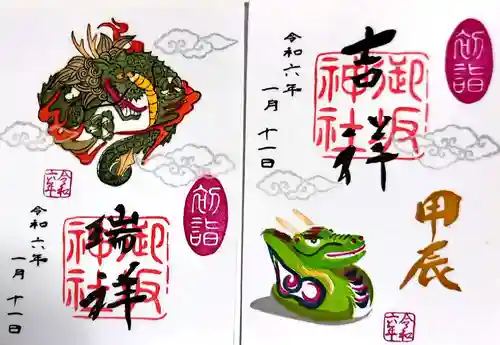 初詣
吉祥
御坂神社
令和六年
一月十一日
甲辰
令和六年
初詣
瑞祥
御坂神社
令和六年
一月十一日
令和六年